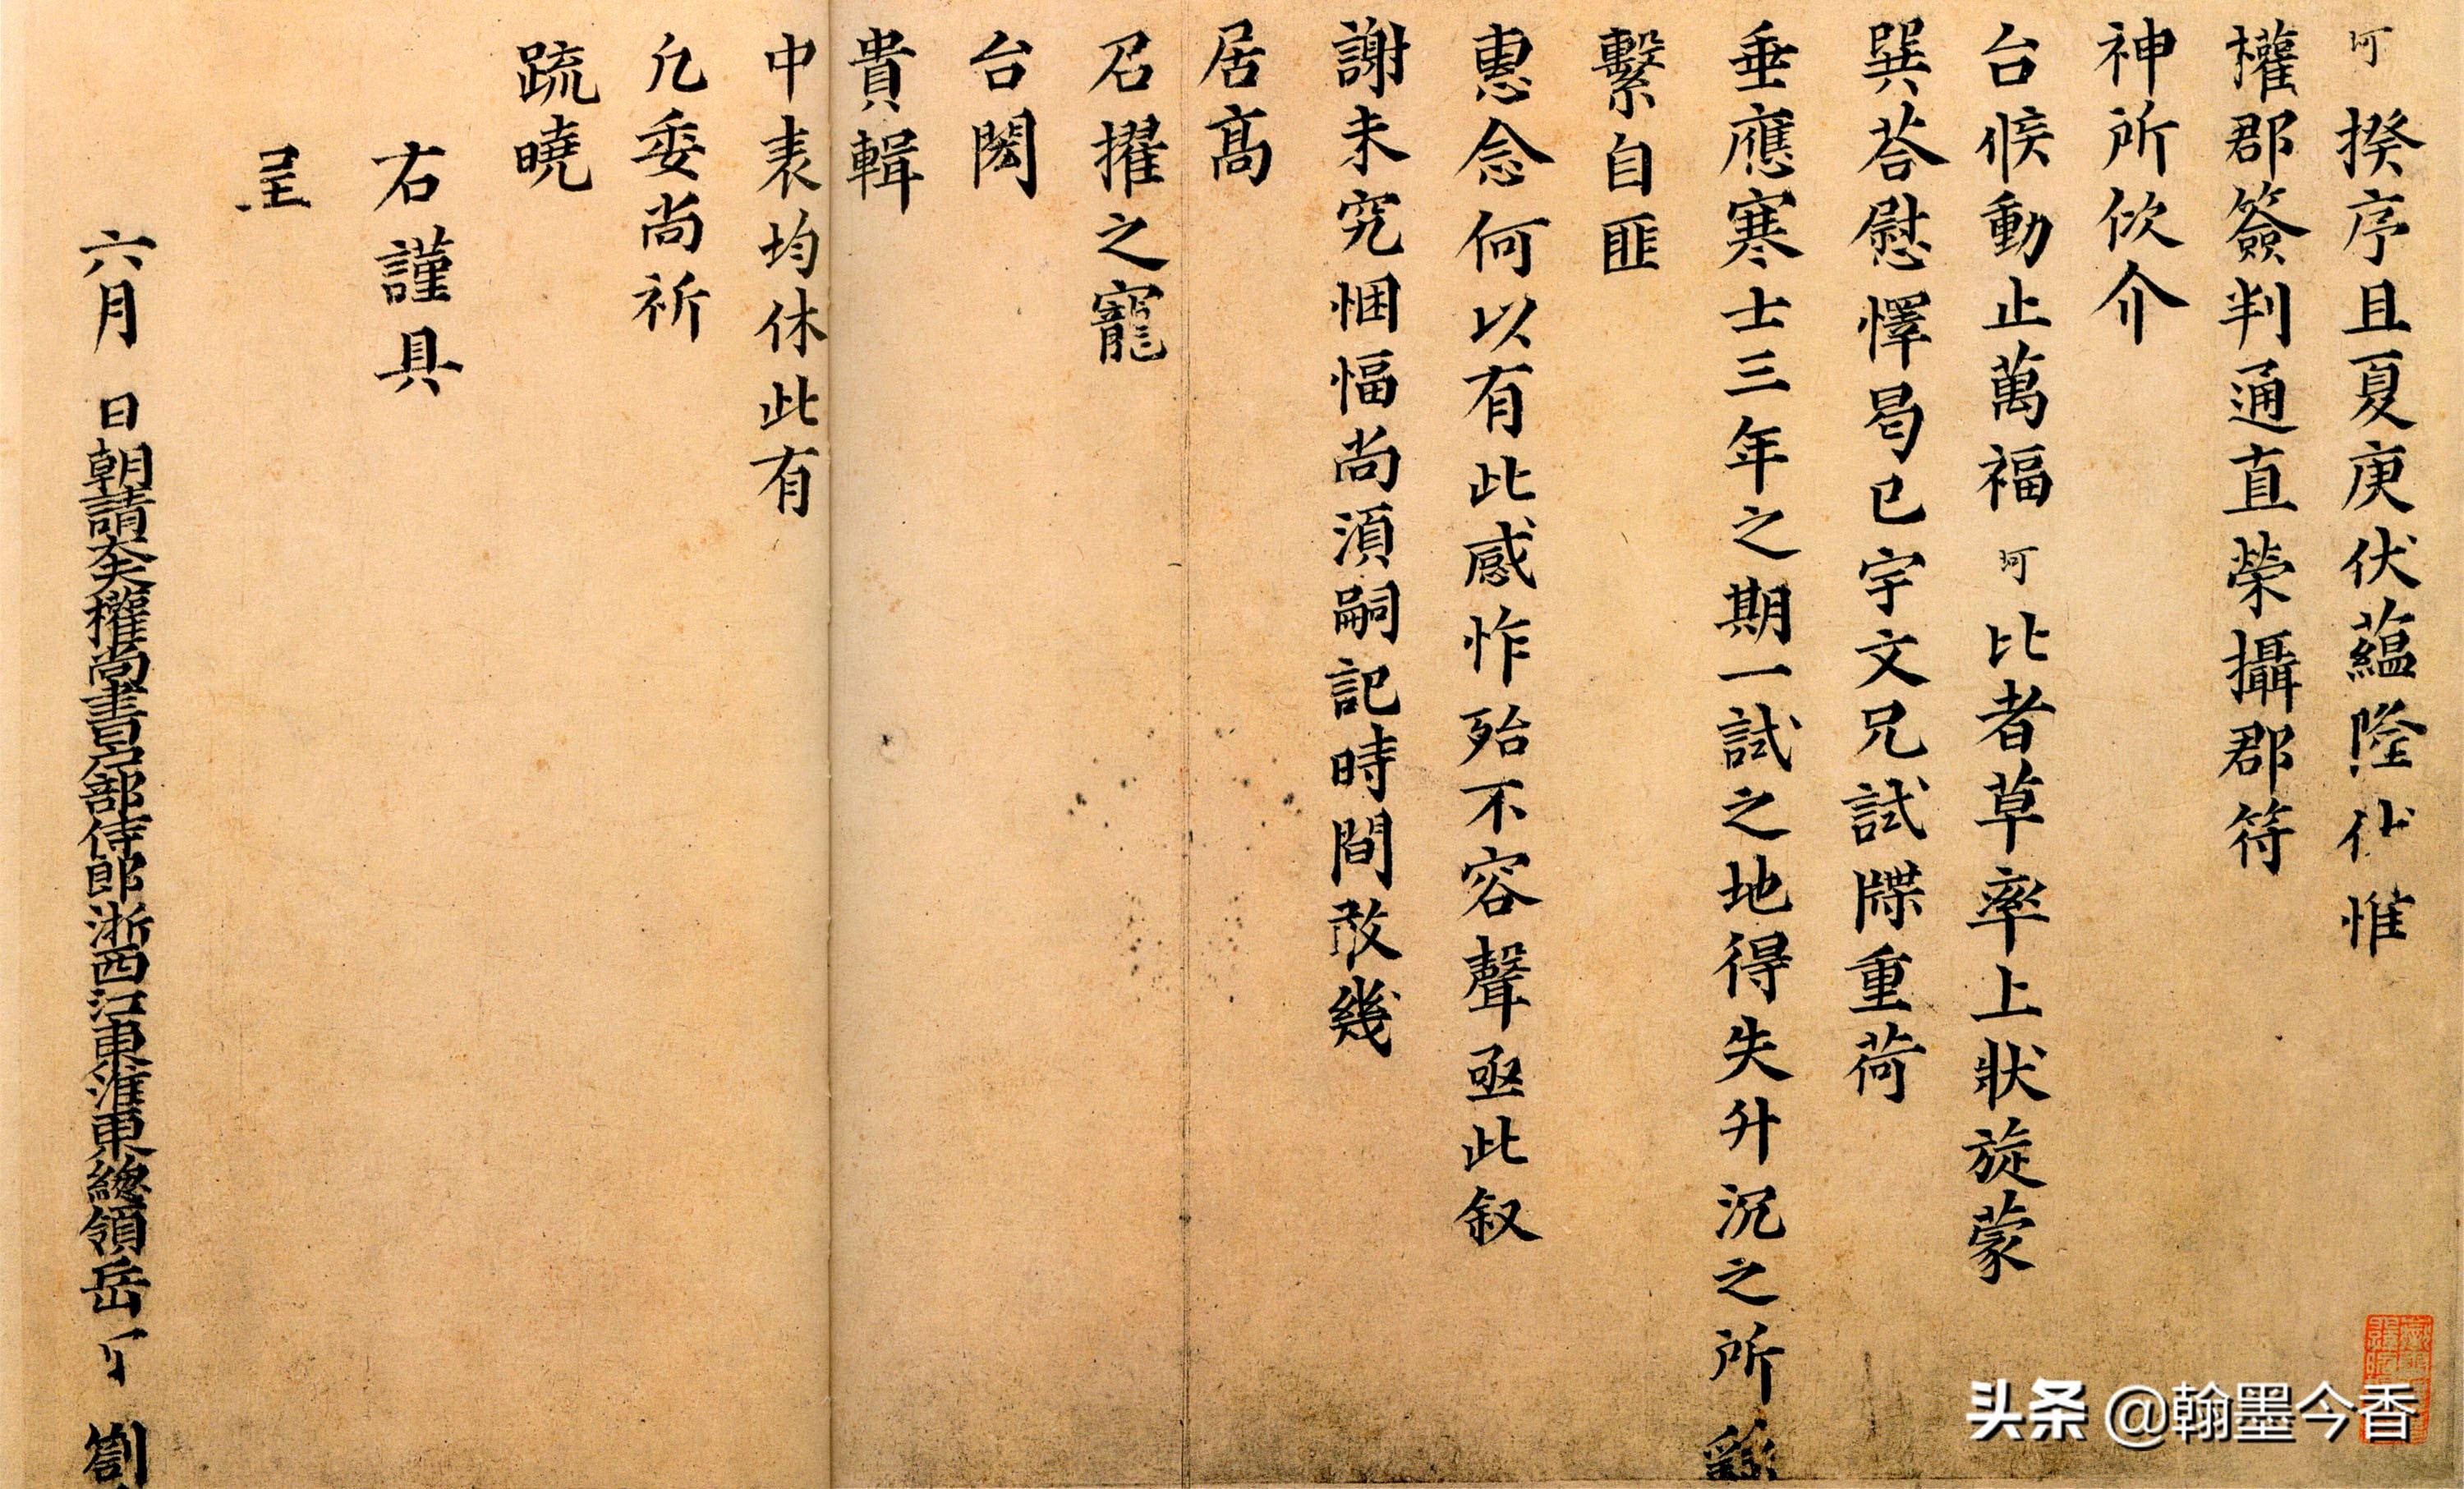 珂揆序且夏庚伏蘊隆伏惟
權郡簽判通直榮攝郡符
神所佽介
台候動止萬福珂比者草率上狀旋蒙
巽荅慰懌曷已宇文兄試牒重荷
垂應寒士三年之期一試之地得失升沉之所
繫自匪
惠念何以有此感怍殆不容聲亟此叙
謝未究悃愊尚須嗣記時間敢幾
居高
召擢之寵
台閎
貴輯
中表均休此有
凡委尚祈
疏曉
右謹具
呈
六月 日朝請大夫權尚書戶部侍郎浙西江東淮東總領岳 劄
头条 @翰墨今香